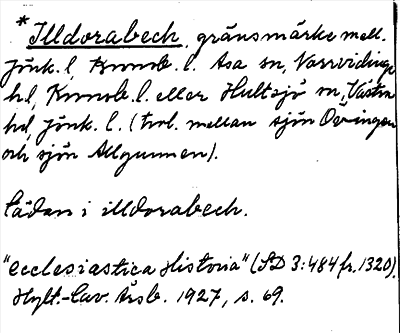 *Illdorabech, gränsmärke mell.
Jönk. l, Kronob. l. Asa sn, Norrvidinge
hd, Kronob. l. eller Hultsjö sn, Västra
hd, Jönk. l. (trol. mellan sjön Övingen
och sjön Allgunnen).
Sådan i illdorabech.
"Ecclesiastica Historia" (SD 3:484 fr. 1320).
Hylt.-Cav. Årsb. 1927, s. 69.